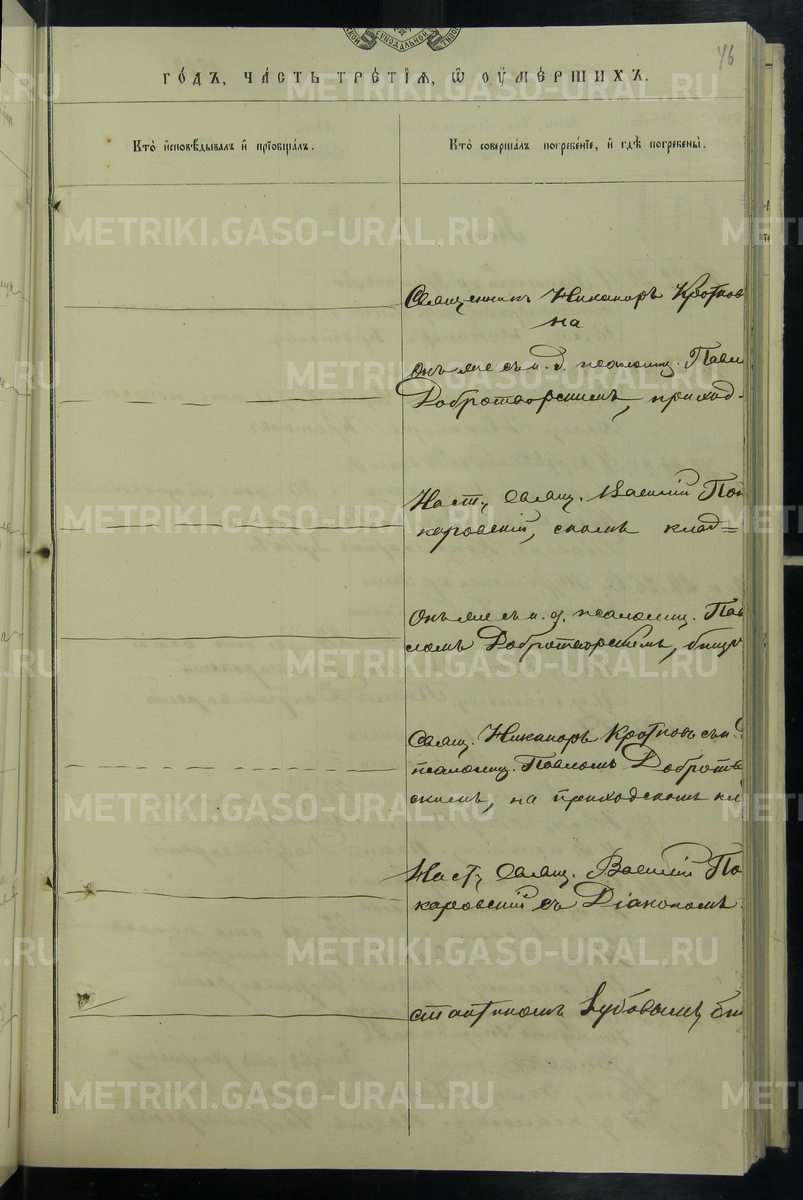 СУНОДАЛЬНОЙ
46
ГО́ДЪ, ЧА́СТЬ ТРЕ́ТІѦ, Ѡ҆ ОУ҆МЕ́РШИХЪ.
Кто̀ и҆сповѣ́дывалъ и҆ прїѡбща́лъ.
Кто̀ соверша́лъ погребе́нїе, и҆ гдѣ̀ погребены̀.
Священникъ Никаноръ Кротков
на
Онъ же съ и. д. псаломщ. Павл
Добротворскимъ, приход-
Наст. Свящ. Василій По
каровскій, скомъ клад=
Онъ же съ и. д. псаломщ. Пав
ломъ Добротворскимъ,
Свящ. Никаноръ Кротковъ съ и.
псаломщ. Павломъ Добротв
скимъ, на приходскомъ кл
Наст. Свящ. Василій По
каровскій съ Діакономъ
стантиномъ Зубовымъ,
METRIKI.GASO-URAL.RU